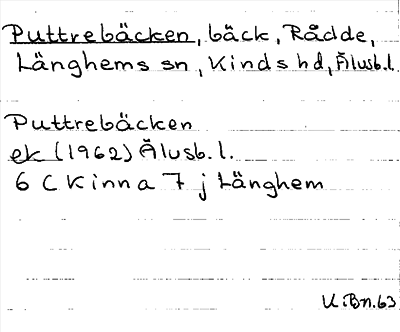 Puttrebäcken, bäck, Rådde,
Länghems sn, Kinds hd, Älvsb.l.
Puttrebäcken
ek (1962) Älvsb. l.
6 C Kinna 7 j Länghem
U.Bn.63